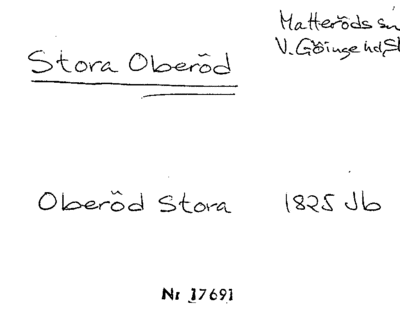 Matteröds sn
Stora Oberöd
V. Göinge hd,
Oberöd Stora 1825 Jb
Nr 17691